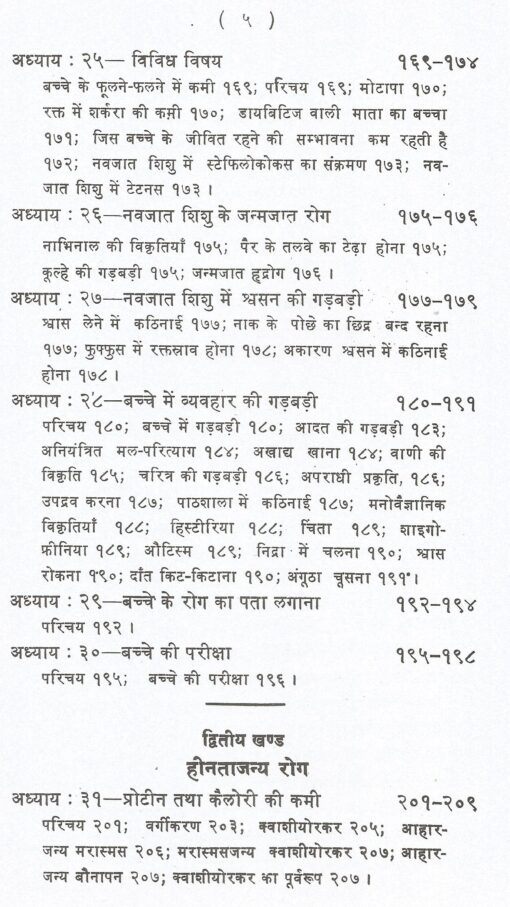 ( ५ )
अध्याय : २५— विविध विषय १६९-१७४
बच्चे के फूलने-फलने में कमी १६९; परिचय १६९; मोटापा १७०;
रक्त में शर्करा की कमी १७०; डायबिटिज वाली माता का बच्चा
१७१; जिस बच्चे के जीवित रहने की सम्भावना कम रहती है
१७२; नवजात शिशु में स्टेफिलोकोकस का संक्रमण १७३; नव-
जात शिशु में टेटनस १७३ ।
अध्याय : २६—नवजात शिशु के जन्मजात रोग १७५-१७६
नाभिनाल की विकृतियाँ १७५; पैर के तलवे का टेढ़ा होना १७५;
कूल्हे की गड़बड़ी १७५; जन्मजात हृद्रोग १७६ ।
अध्याय : २७—नवजात शिशु में श्वसन की गड़बड़ी १७७-१७९
श्वास लेने में कठिनाई १७७; नाक के पोछे का छिद्र बन्द रहना
१७७; फुफ्फुस में रक्तस्राव होना १७८; अकारण श्वसन में कठिनाई
होना १७८ ।
अध्याय : २८—बच्चे में व्यवहार की गड़बड़ी १८०-१९१
परिचय १८०; बच्चे में गड़बड़ी १८०; आदत की गड़बड़ी १८३;
अनियंत्रित मल-परित्याग १८४; अखाद्य खाना १८४; वाणी की
विकृति १८५; चरित्र की गड़बड़ी १८६; अपराधी प्रकृति, १८६;
उपद्रव करना १८७; पाठशाला में कठिनाई १८७; मनोवैज्ञानिक
विकृतियाँ १८८; हिस्टीरिया १८८; चिंता १८९; शाइगो-
फ्रीनिया १८९; औटिस्म १८९; निद्रा में चलना १९०; श्वास
रोकना १९०; दाँत किट-किटाना १९०; अंगूठा चूसना १९१ ।
अध्याय : २९—बच्चे के रोग का पता लगाना १९२-१९४
परिचय १९२ ।
अध्याय : ३०—बच्चे की परीक्षा १९५-१९८
परिचय १९५; बच्चे की परीक्षा १९६ ।
द्वितीय खण्ड
हीनताजन्य रोग
अध्याय : ३१—प्रोटीन तथा कैलोरी की कमी २०१-२०९
परिचय २०१; वर्गीकरण २०३; क्वाशीयोरकर २०५; आहार-
जन्य मरास्मस २०६; मरास्मसजन्य क्वाशीयोरकर २०७; आहार-
जन्य बौनापन २०७; क्वाशीयोरकर का पूर्वरूप २०७ ।